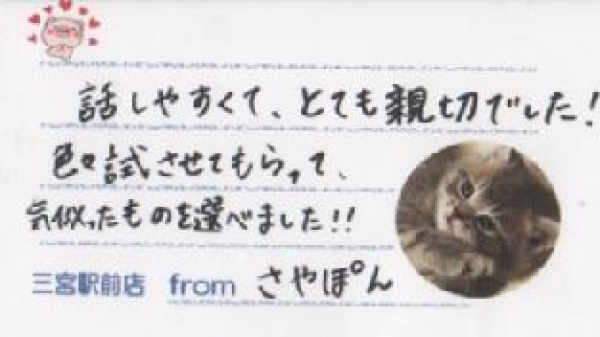 話しやすくて、とても親切でした!
色々試させてもらって、
気似ったものを選べました!!
三宮駅前店 from さやぽん